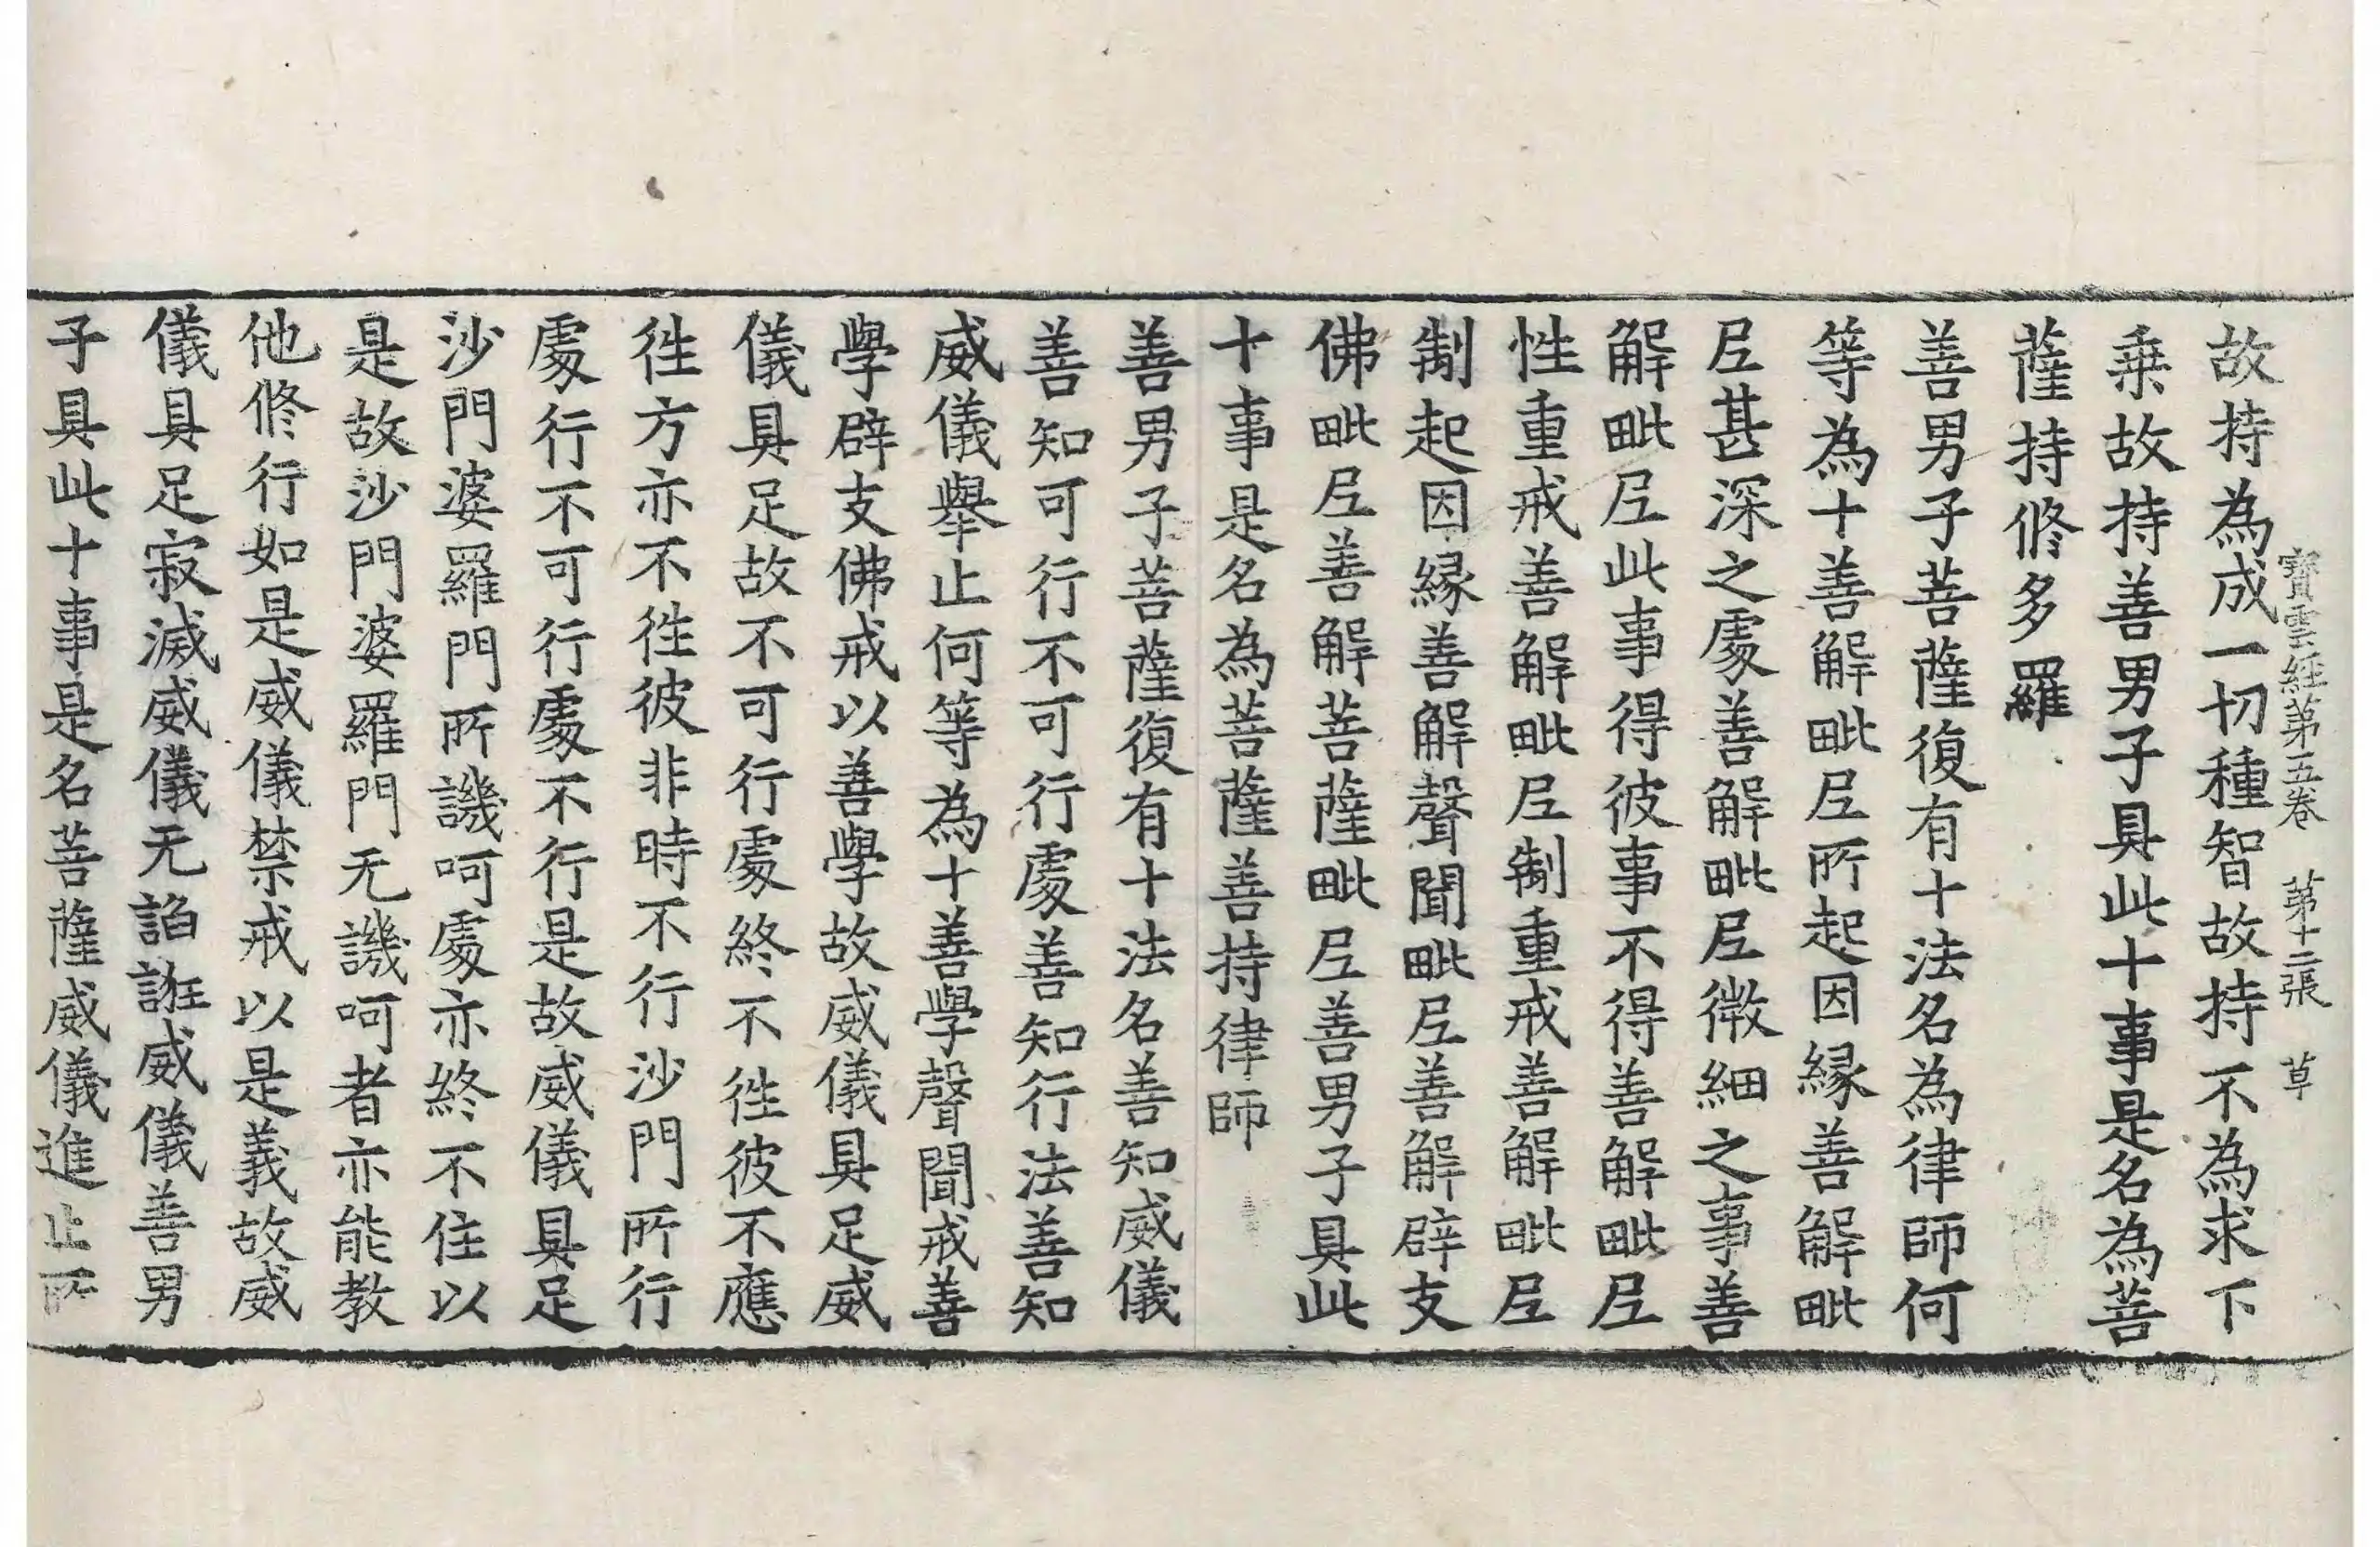 寶雲經第五卷　第十二張　草
故持為成一切種智故持不為求下
乗故持善男子具此十事是名為菩
薩持脩多羅
善男子菩薩復有十法名為律師何
等為十善解毗尼所起因緣善解毗
尼甚深之處善解毗尼微細之事善
解毗尼此事得彼事不得善解毗尼
性重戒善解毗尼制重戒善解毗尼
制起因緣善解聲聞毗尼善解辟支
佛毗尼善解菩薩毗尼善男子具此
十事是名為菩薩善持律師
善男子菩薩復有十法名善知威儀
善知可行不可行處善知行法善知
威儀舉止何等為十善學聲聞戒善
學辟支佛戒以善學故威儀具足威
儀具足故不可行處終不徃彼不應
徃方亦不徃彼非時不行沙門所行
處行不可行處不行是故威儀具足
沙門婆羅門所譏呵處亦終不住以
是故沙門婆羅門无譏呵者亦能教
他脩行如是威儀禁戒以是義故威
儀具足寂滅威儀无諂誑威儀善男
子具此十事是名菩薩威儀進止所